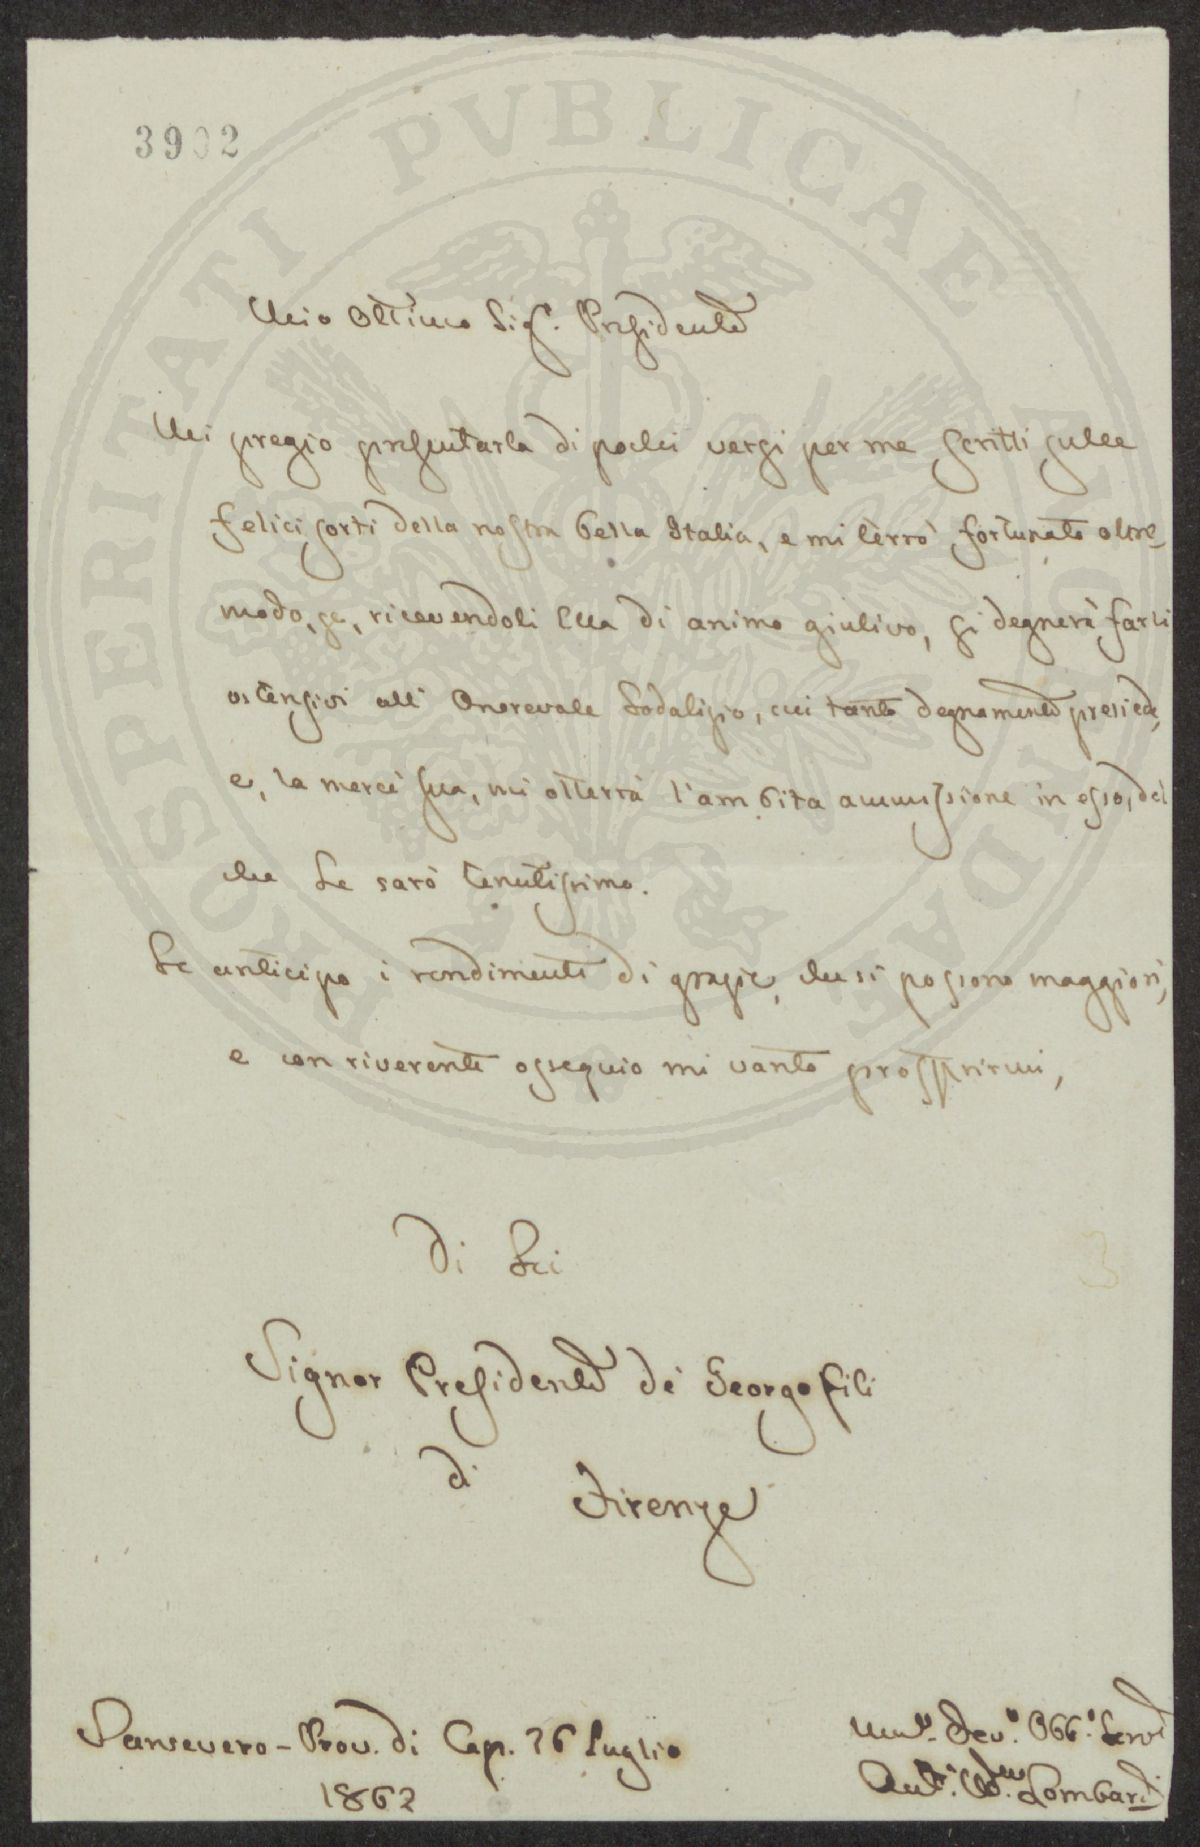 3902
PROSPERITATI PVBLICAE AVGENDAE
Mio Ottimo Sig.r Presidente
Mi pregio presentarla di pochi versi per me scritti sulle
felici sorti della nostra bella Italia, e mi terrò fortunato oltre
modo, se, ricevendoli Ella di animo giulivo, si degnerà farli
ostensivi all' Onorevale Sodalizio, cui tanto degnamente presiede,
e, la mercè sua, mi otterrà l'ambita ammissione in esso, del
che Le sarò tenutissimo.
Le anticipo i rendimenti di grazie, che si possono maggiori,
e con riverente ossequio mi vanto profferirmi,
Di Lei
Signor Presidente de' Georgofili
di Firenze
Sansevero - Prov. di Cap. 26 Luglio
1862
Um.o Dev.o Obb.o Serv.e
Ant. Lombardi